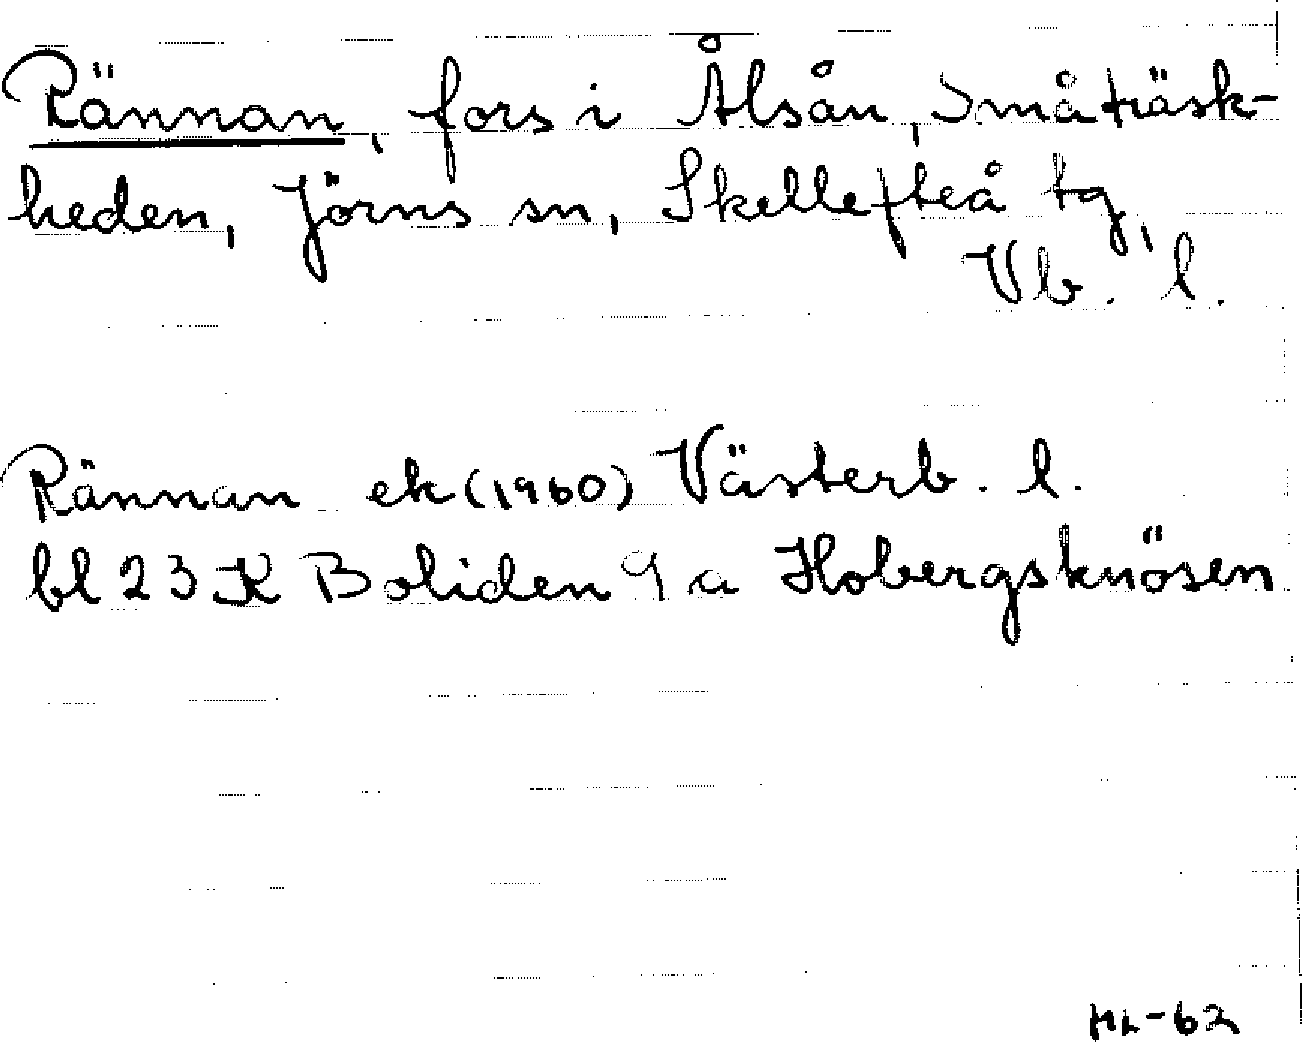 Rännan, fors i Ålsån, Småträsk-
heden, Jörns sn, Skellefteå tg,
Vb. l.
Rännan ek (1960) Västerb. l.
bl 23 K Boliden 9 a Hobergsknösen
HL-62